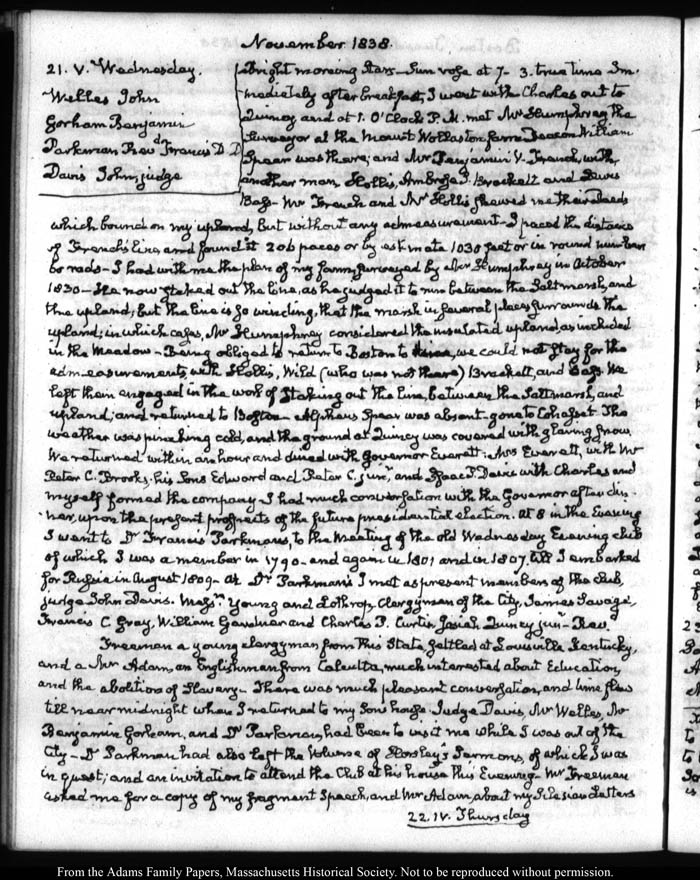 November 1838.
21. V. Wednesday.
Welles John
Gorham Benjamin
Parkman Revd. Francis D. D
Davis John, judge
Bright morning Stars—Sun rose at 7–3. true time Im-
mediately after breakfast, I went with Charles out to
Quincy and at 1. O'Clock P. M. met Mr Humphrey the
Surveyor at the Mount Wollaston farm Deacon William
Spear was there; and Mr Benjamin V. French, with
another man Hollis, Ambrose Brackett and Lewis
Bass— Mr French and Mr Hollis shewed me their deeds
which bound on my upland, but without any admeasurement—I paced the distance
of French's line and found it 206 paces or by estimate 1030 feet or in round number
60 rods—I had with me the plan of my farm, surveyed by Mr Humphrey in October
1830—He now staked out the line, as he judged it to run between the Saltmarsh, and
the upland; but the line is so winding, that the marsh in several places surrounds the
upland; in which cases, Mr Humphrey considered the insulated upland, as included
in the meadow—Being obliged to return to Boston to dinner, we could not stay for the
admeasurements, with Hollis, Wild (who was not there) Brackett, and Bass. We
left them engaged in the work of staking out the line, between the Saltmarsh, and
upland; and returned to Boston— Alpheus Spear was absent—gone to Cohasset The
weather was pinching cold, and the ground at Quincy was covered with glaring snow
We returned within an hour and dined with Governor Everett: Mrs Everett, with Mr
Peter C. Brooks. his Sons Edward and Peter C. junr, and Isaac P. Davis with Charles and
myself formed the company I had much conversation with the Governor after din-
ner, upon the present prospects of the future presidential election. At 8 in the Evening
I went to Dr Francis Parkman's, to the Meeting of the old Wednesday Evening club
of which I was a member in 1790—and again in 1801 and in 1807. till I embarked
for Russia in August 1809— At Dr Parkman's I met as present members of the Club,
judge John Davis. Messrs Young and Lothrop, Clergymen of the City, James Savage,
Francis C Gray, William Gardner and Charles P. Curtis, Josiah Quincy junr— Revd
Freeman a young clergyman from this State, settled at Louisville Kentucky,
and a Mr Adam, an Englishman from Calcutta, much interested about Education,
and the abolition of Slavery— There was much pleasant conversation, and time flew
till near midnight when I returned to my Son's house Judge Davis, Mr Welles, Mr
Benjamin Gorham, and Dr Parkman, had been to visit me while I was out of the
City— Dr Parkman had also left the Volume of Horsley's Sermons, of which I was
in quest; and an invitation to attend the Club at his house this Evening— Mr Freeman
asked me for a copy of my fragment Speech, and Mr Adam, about my Silesian Letters
22. IV. Thursday
From the Adams Family Papers, Massachusetts Historical Society. Not to be reproduced without permission.